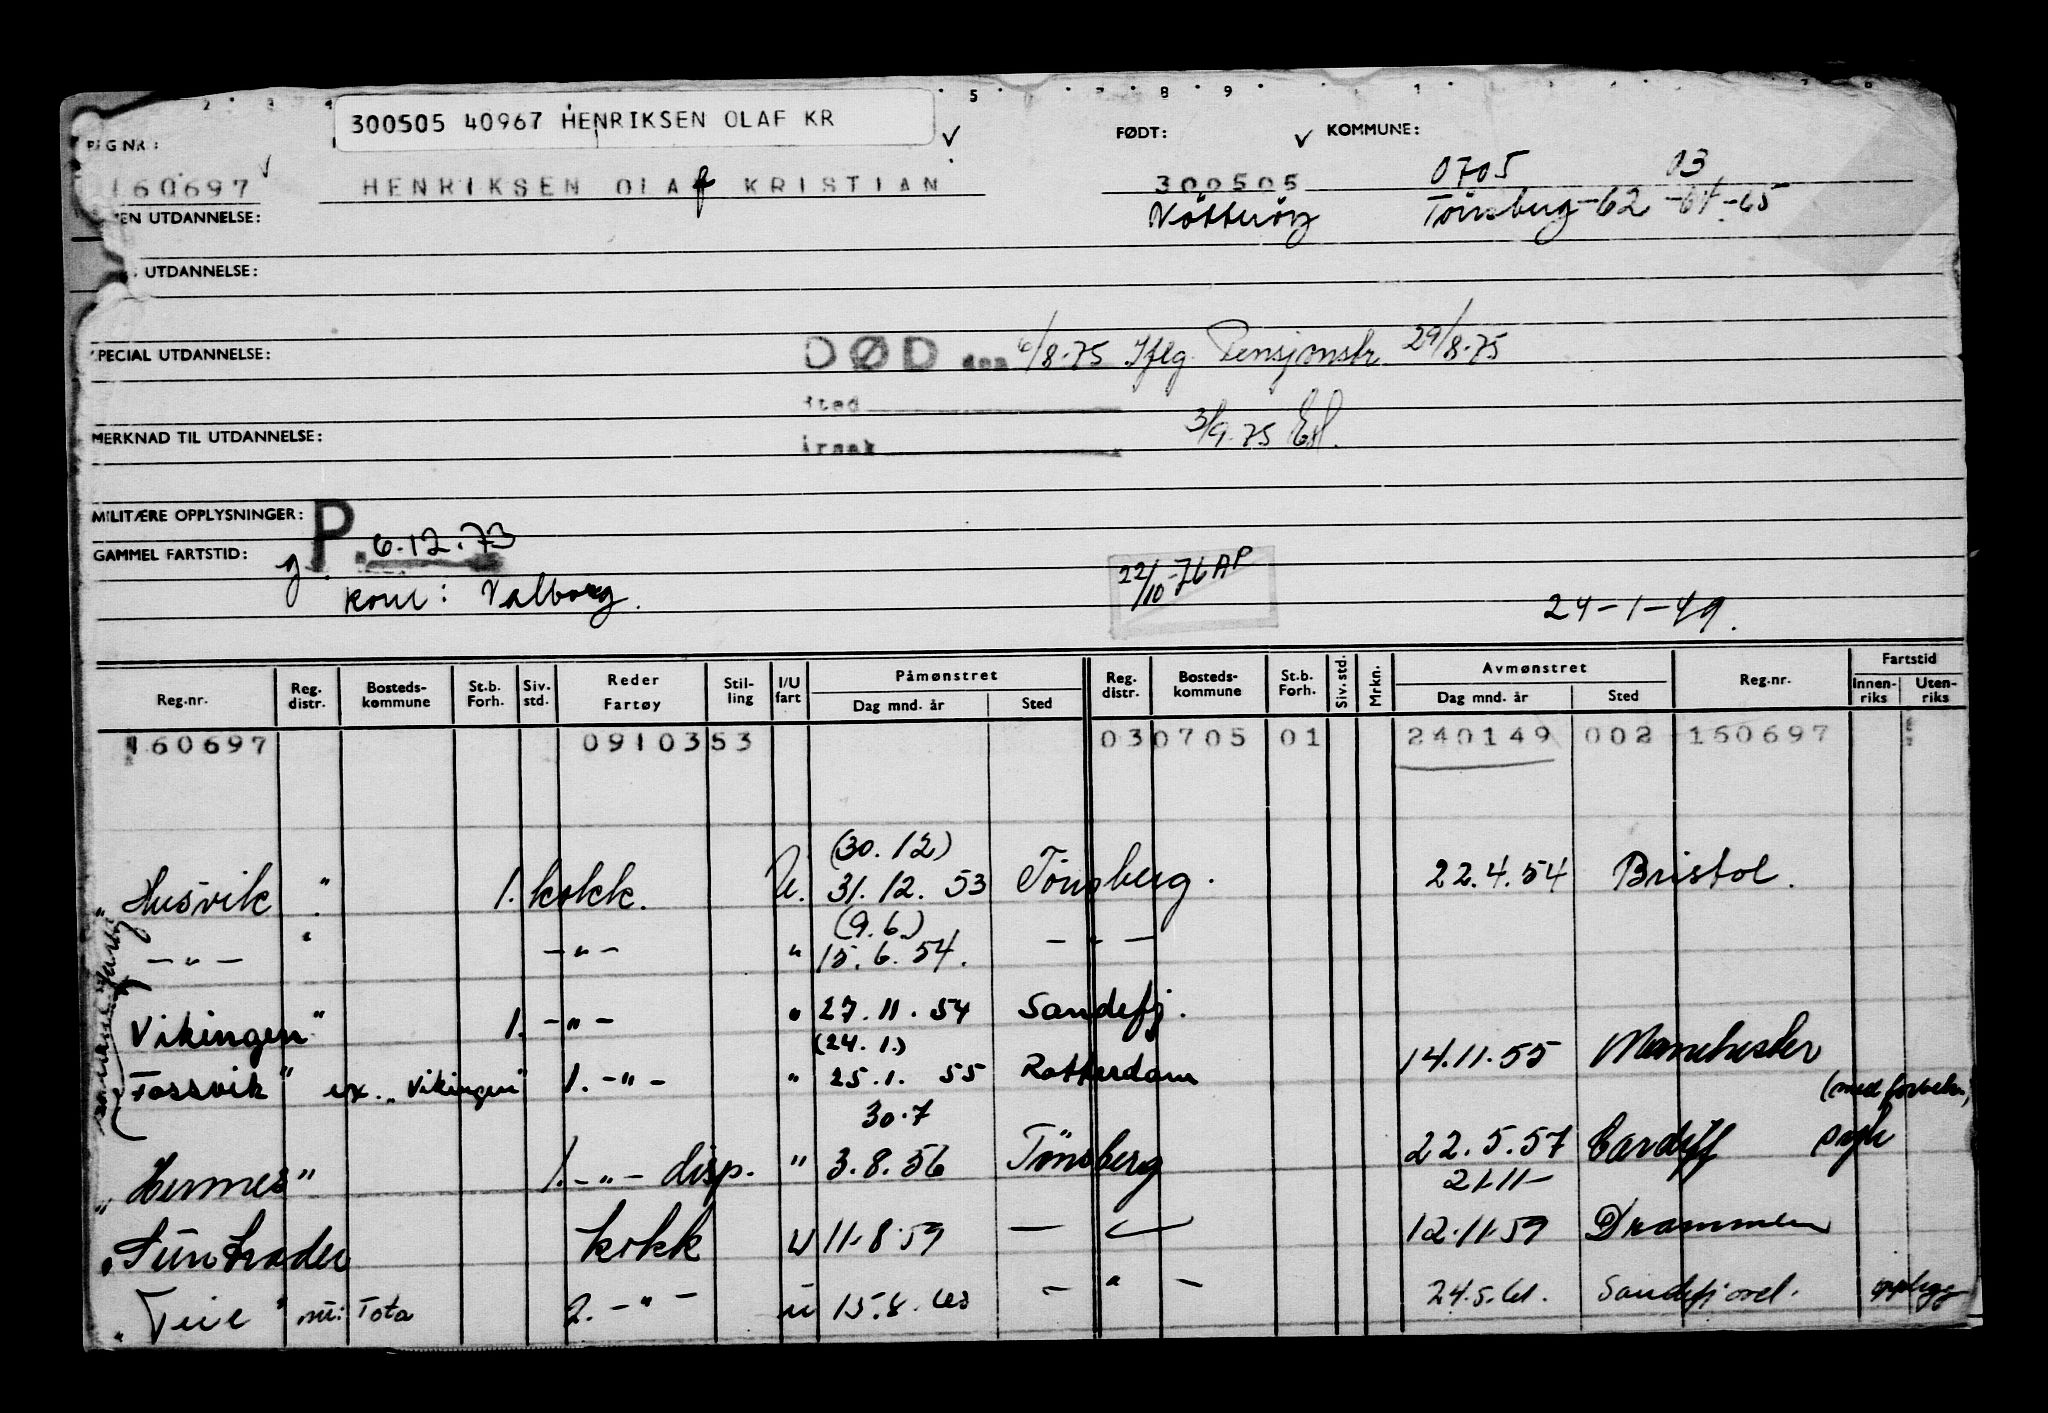 2 3 4 5 7 8 9 1
300505 40967 HENRIKSEN OLAF KR
REG NR: FØDT: KOMMUNE:
160697 HENRIKSEN OLAF KRISTIAN 300505 0705 03
Nötteröy Tönsberg-62 -64-65
UTDANNELSE:
UTDANNELSE:
SPECIAL UTDANNELSE: DØD den 6/8-75 Iflg. Pensjonstr. 29/8-75
Sted
MERKNAD TIL UTDANNELSE: årsak 3/9-75
MILITÆRE OPPLYSNINGER:
GAMMEL FARTSTID: g P. 6.12.73
kone: Valborg. 22/10-76 AP 24-1-49.
Påmønstret Avmønstret Fartstid
Reg.nr. Reg. distr. Bosteds-kommune St.b. Forh. Siv. std. Reder Fartøy Stil-ling I/U fart Dag mnd. år Sted Reg. distr. Bosteds-kommune St.b. Forh. Siv. std. Mrkn. Dag mnd. år Sted Reg.nr. Innen-riks Uten-riks
160697 0910353 030705 01 240149 002 160697
(30.12)
"Husvik" 1. kokk. U. 31.12.53 Tönsberg. 22.4.54 Bristol.
(9.6.)
-"- -"- " 15.6.54. -"-
Vikingen" 1. -"- " 27.11.54 Sandefj.
(24.1.)
Fossvik" ex. "Vikingen" 1. -"- " 25.1.55 Rotterdam 14.11.55 Manchester
30.7
"Hermes" 1. -"- disp. " 3.8.56 Tönsberg 22.5.57 Cardiff syk
21-11-
"Suntrader kokk U 11-8-59 12-11-59 Drammen
"Teie" nu: Tota 2. -"- u 15.8.60 -"- 24.5.61. Sandefjord. opplegg